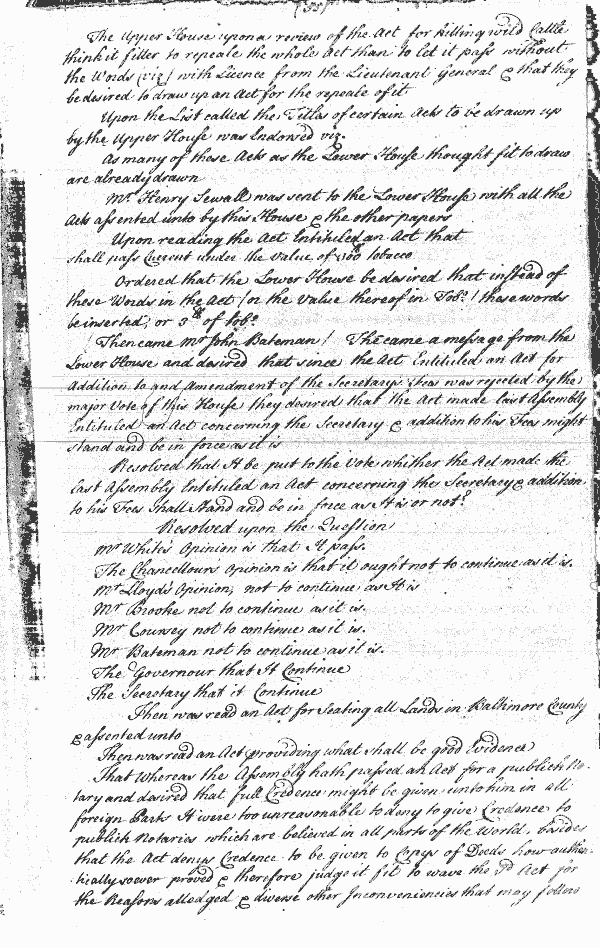 (55)
The Upper House upon a review of the Act for killing wild Cattle
think it fitter to repeale the whole Act than to let it pass without
the Words (viz) with Licence from the Lieutenant General & that they
be desired to draw up an Act for the repeale of it
Upon the List called the Titles of certain Acts to be drawn up
by the Upper House was Endorsed viz.
As many of these Acts as the Lower House thought fit to draw
are already drawn
Mr Henry Sewall was sent to the Lower House with all the
Acts assented unto by this House & the other papers
Upon reading the Act Entituled an Act that
shall pass Current under the value of 300th tobacco
Ordered that the Lower House be desired that instead of
these Words in the Act (or the value thereof in Tobo) these words
be inserted, or 3th of Tobo
Then came Mr John Bateman! The came a message from the
Lower House and desired that since the Act Entituled an Act for
Addition to and Amendment of the Secretarys Fees was rejected by the
major Vote of this House they desired that the Act made last Assembly
Entituled an Act concerning the Secretary & addition to his Fees might
stand and be in force as it is
Resolved that It be put to the Vote whether the Act made the
last Assembly Entituled an Act concerning the Secretary & addition
to his Fees Shall stand and be in force as It is or not?
Resolved upon the Question
Mr White's Opinion is that It pass.
The Chancellours Opinion is that it ought not to continue as it is.
Mr Lloyd's Opinion, not to continue as It is
Mr Brooke not to continue as it is.
Mr Coursey not to continue as it is.
Mr Bateman not to continue as it is.
The Governour that It Continue
The Secretary that it Continue
Then was read an Act for Seating all Lands in Baltimore County
& assented unto
Then was read an Act providing what shall be good Evidence
That Whereas the Assembly hath passed an Act for a publick No-
tary and desired that full Credence might be given unto him in all
foreign Parts It were too unreasonable to deny to give Credence to
publick Notaries which are believed in all parts of the World, besides
that the Act denys Credence to be given to Copys of Deeds how authen-
tically soever proved & therefore judge it fit to wave the sd Act for
the Reasons alledged & diverse other Inconveniencies that may follow